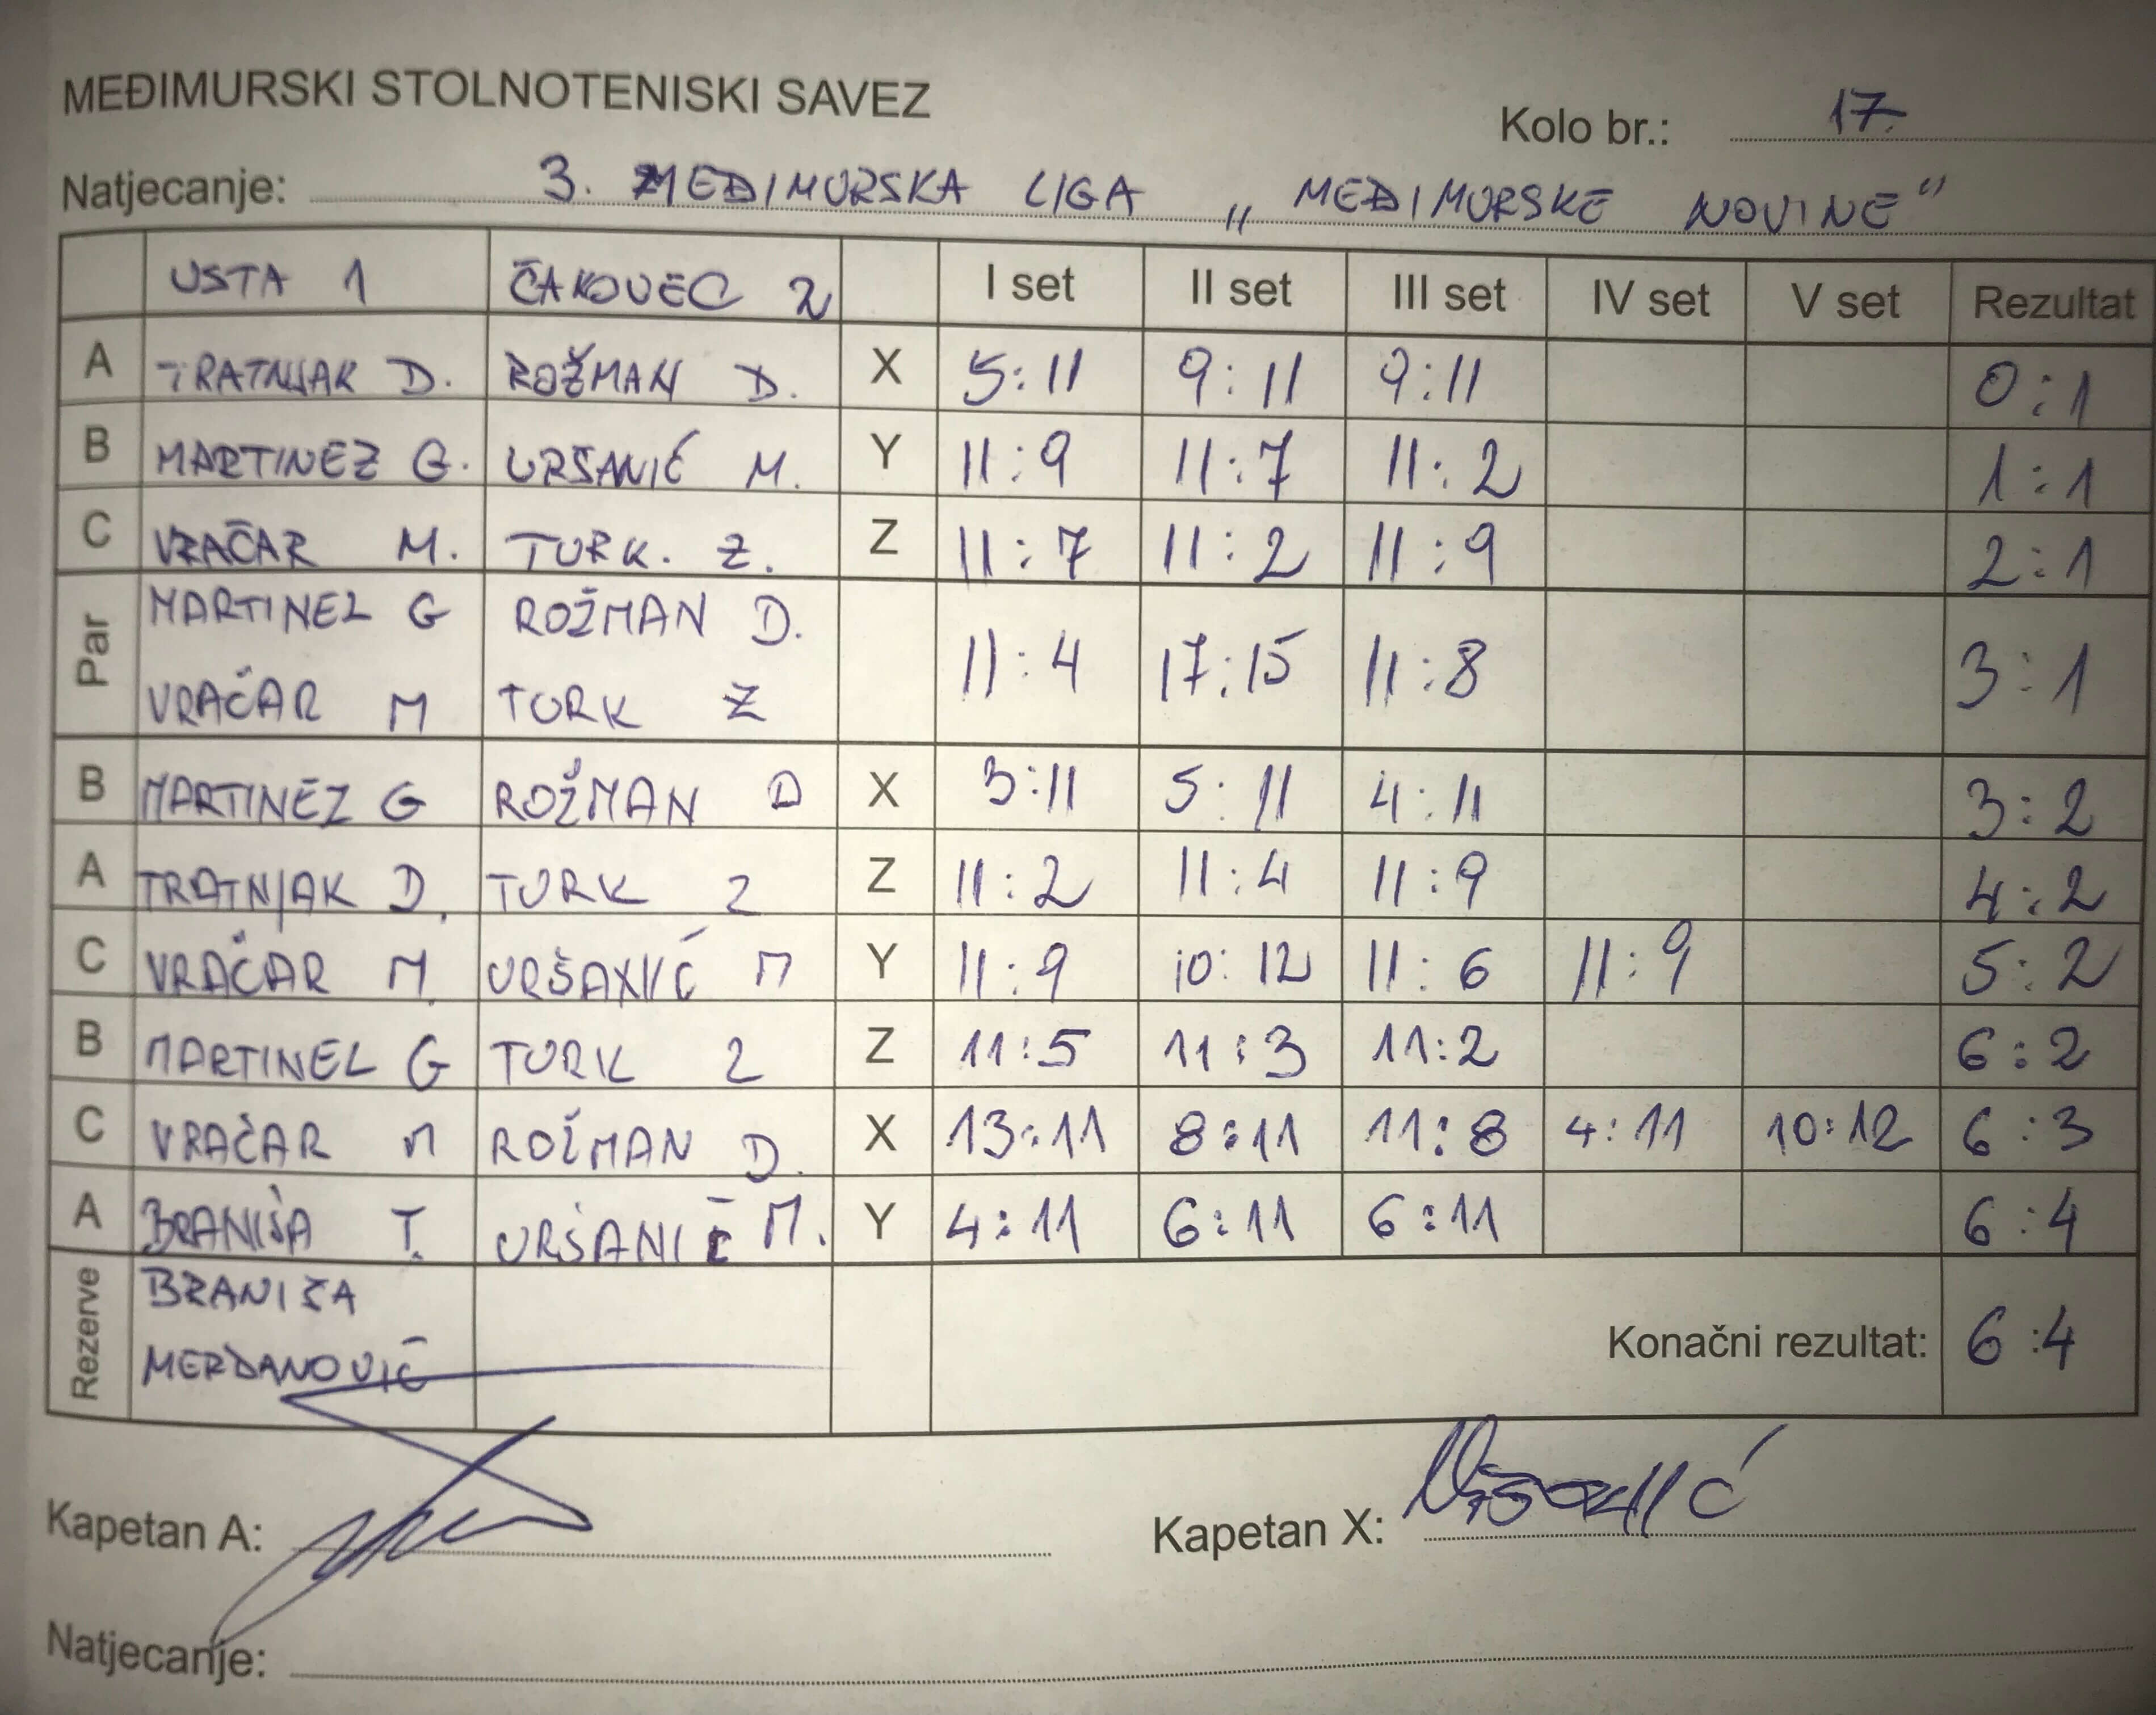 MEĐIMURSKI STOLNOTENISKI SAVEZ
Kolo br.: 17.
Natjecanje: 3. MEĐIMURSKA LIGA „MEĐIMURSKE NOVINE"
USTA 1 ČAKOVEC 2 I set II set III set IV set V set Rezultat
A TRATNJAK D. ROŽMAN D. X 5:11 9:11 9:11 0:1
B MARTINEZ G. URŠANIĆ M. Y 11:9 11:7 11:2 1:1
C VRAČAR M. TURK. Z. Z 11:7 11:2 11:9 2:1
Par MARTINEZ G ROŽMAN D.
VRAČAR M TURK Z 11:4 17:15 11:8 3:1
B MARTINEZ G ROŽMAN D X 3:11 5:11 4:11 3:2
A TRATNJAK D. TURK Z Z 11:2 11:4 11:9 4:2
C VRAČAR M. URŠANIĆ M Y 11:9 10:12 11:6 11:9 5:2
B MARTINEZ G TURK Z Z 11:5 11:3 11:2 6:2
C VRAČAR M ROŽMAN D. X 13:11 8:11 11:8 4:11 10:12 6:3
A BRANIŠA T. URŠANIĆ M. Y 4:11 6:11 6:11 6:4
Rezerve BRANIŠA
MERDANOVIĆ
Konačni rezultat: 6:4
Kapetan A: Kapetan X: Uršanić
Natjecanje: